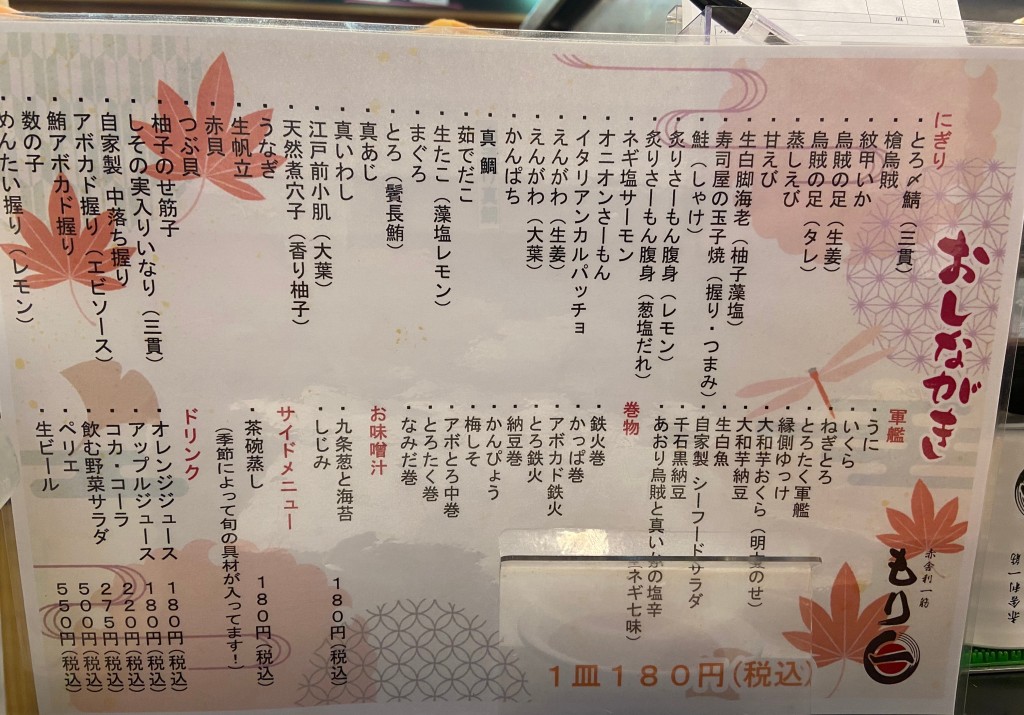 おしながき
赤舎利一筋
もり一
にぎり
・とろ〆鯖（三貫）
・槍烏賊
・紋甲いか
・烏賊の足（生姜）
・烏賊の足（タレ）
・蒸しえび
・甘えび
・生白脚海老（柚子藻塩）
・寿司屋の玉子焼（握り・つまみ）
・鮭（しゃけ）
・炙りさーもん腹身（レモン）
・炙りさーもん腹身（葱塩だれ）
・ネギ塩サーモン
・オニオンさーもん
・イタリアンカルパッチョ
・えんがわ（生姜）
・えんがわ（大葉）
・かんぱち
・真鯛
・茹でだこ
・生たこ（藻塩レモン）
・まぐろ
・とろ（鬢長鮪）
・真あじ
・真いわし
・江戸前小肌（大葉）
・天然煮穴子（香り柚子）
・うなぎ
・生帆立
・赤貝
・つぶ貝
・柚子のせ筋子
・しその実入りいなり（三貫）
・自家製 中落ち握り
・アボカド握り（エビソース）
・鮪アボカド握り
・数の子
・めんたい握り（レモン）
軍艦
・うに
・いくら
・ねぎとろ
・とろたく軍艦
・縁側ゆっけ
・大和芋おくら（明太のせ）
・大和芋納豆
・生白魚
・自家製 シーフードサラダ
・千石黒納豆
・あおり烏賊と真いかの塩辛
ネギ七味）
巻物
・鉄火巻
・かっぱ巻
・アボカド鉄火
・とろ鉄火
・納豆巻
・かんぴょう
・梅しそ
・アボとろ中巻
・とろたく巻
・なみだ巻
お味噌汁
・九条葱と海苔
・しじみ
１８０円（税込）
サイドメニュー
・茶碗蒸し １８０円（税込）
（季節によって旬の具材が入ってます！）
ドリンク
・オレンジジュース １８０円（税込）
・アップルジュース １８０円（税込）
・コカ・コーラ ２２０円（税込）
・飲む野菜サラダ ２７５円（税込）
・ペリエ ５００円（税込）
・生ビール ５５０円（税込）
１皿１８０円（税込）
赤舎利一筋